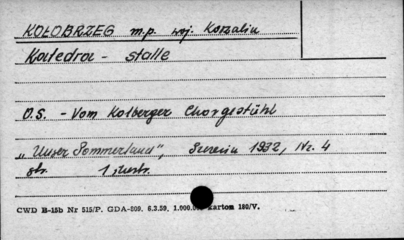 KOŁOBRZEG m.p. woj. Koszalin
Katedra - stalle
O.S. - Vom Kolberger Chorgestühl
„Unser Pommerland", Szczecin 1932, Nr. 4
str. 1 ilustr.
CWD B-15b Nr 515/P. GDA-809. 6.3.59, 1.000.0 kartom 180/V.